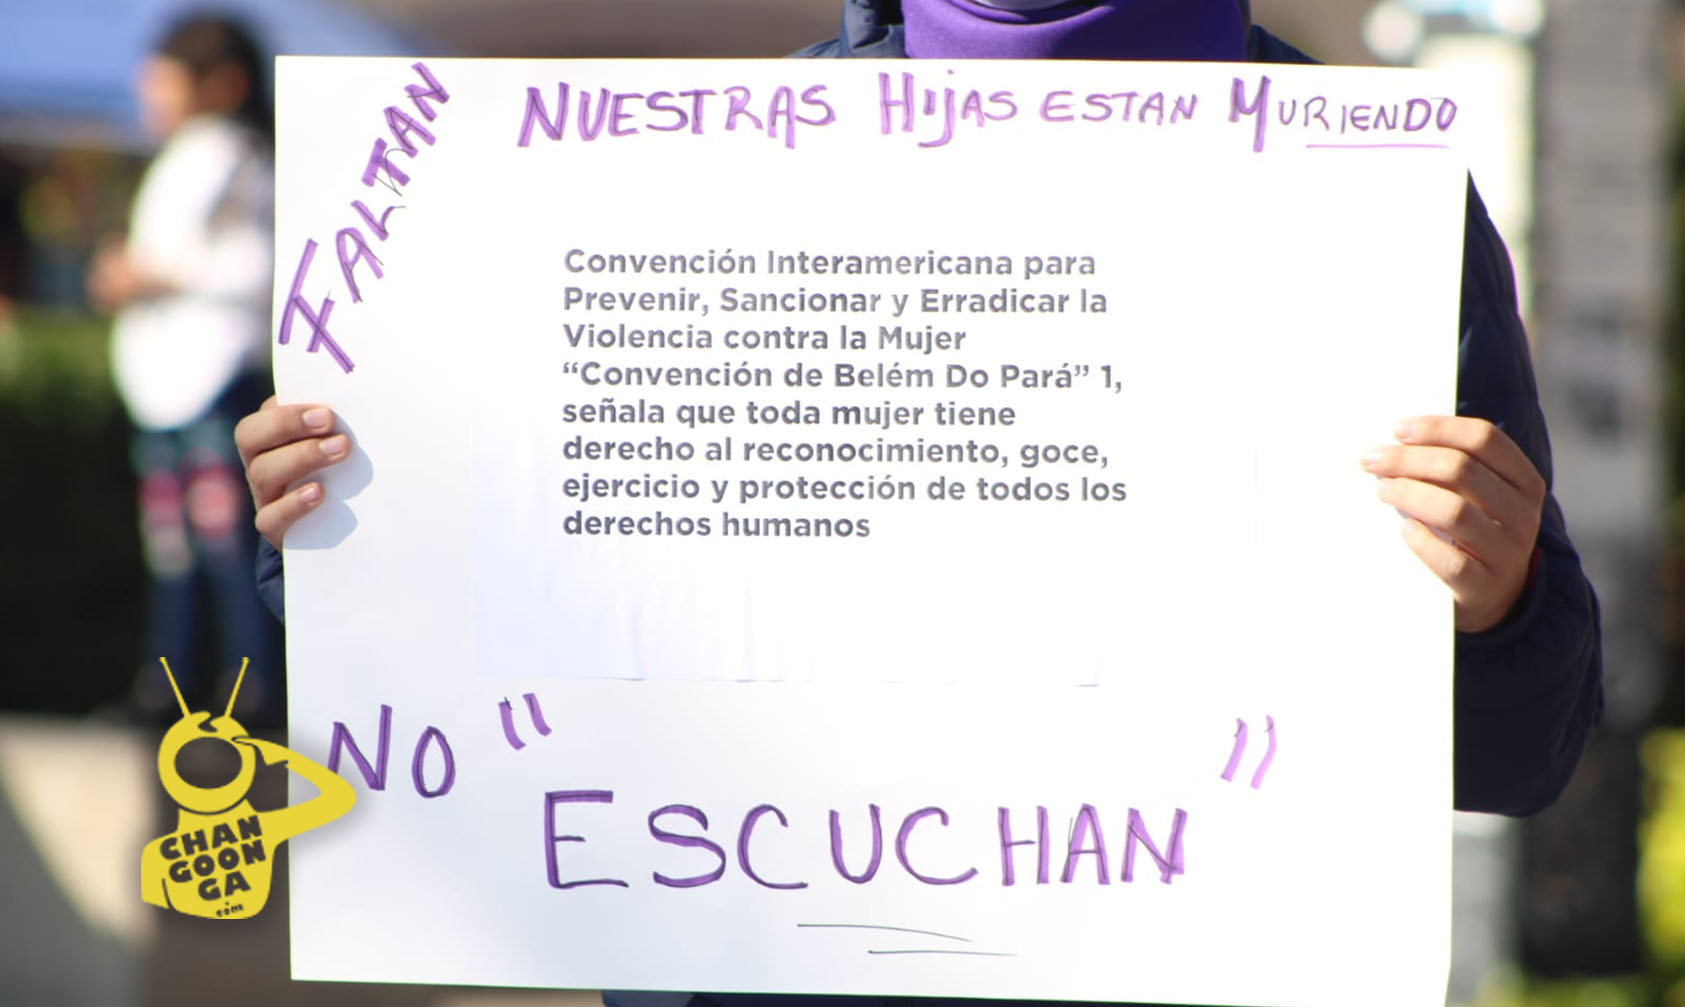 FALTAN
NUESTRAS HIJAS ESTAN MURIENDO
Convención Interamericana para
Prevenir, Sancionar y Erradicar la
Violencia contra la Mujer
“Convención de Belém Do Pará” 1,
señala que toda mujer tiene
derecho al reconocimiento, goce,
ejercicio y protección de todos los
derechos humanos
NO " "
ESCUCHAN
CHAN
GOON
GA
.com